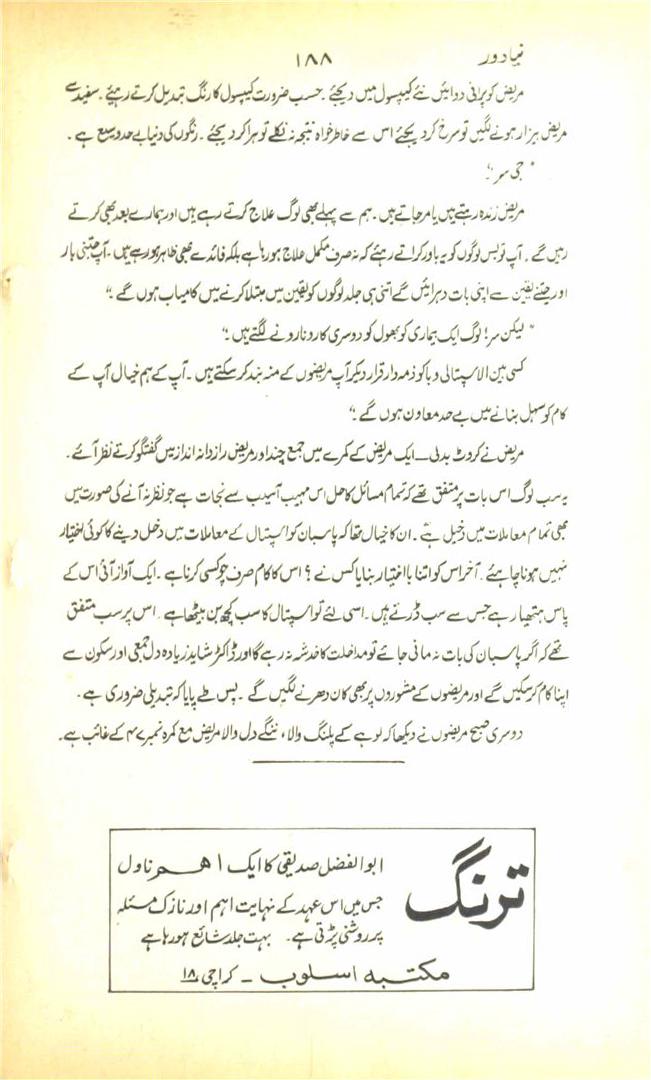 نیا دور
۱۸۸
مریض کو پرانی دوائیں نئے کیپسول میں دیجئے۔ حسب ضرورت کیپسول کا رنگ تبدیل کرتے رہیئے۔ سفید سے
مریض بیزار ہونے لگیں تو سرخ کر دیجئے اس سے خاطر خواہ نتیجہ نہ نکلے تو ہرا کر دیجئے۔ رنگوں کی دنیا بے حد وسیع ہے۔
"جی سر"
مریض زندہ رہتے ہیں یا مر جاتے ہیں۔ ہم سے پہلے بھی لوگ علاج کرتے رہے ہیں اور ہمارے بعد بھی کرتے
رہیں گے۔ آپ تو بس لوگوں کو یہ باور کراتے رہئے کہ نہ صرف مکمل علاج ہو رہا ہے بلکہ فائدے بھی ظاہر ہو رہے ہیں۔ آپ جتنی بار
اور جتنے یقین سے اپنی بات دہرائیں گے اتنی ہی جلد لوگوں کو یقین میں مبتلا کرنے میں کامیاب ہوں گے۔"
"لیکن سر! لوگ ایک بیماری کو بھول کو دوسری کا رونا رونے لگتے ہیں۔"
کسی بین الاسپتالی وبا کو ذمہ دار قرار دیکر آپ مریضوں کے منہ بند کر سکتے ہیں۔ آپ کے ہم خیال آپ کے
کام کو سہل بنانے میں بے حد معاون ہوں گے۔"
مریض نے کروٹ بدلی — ایک مریض کے کمرے میں جمع چند اور مریض رازدانہ انداز میں گفتگو کرتے نظر آئے۔
یہ سب لوگ اس بات پر متفق تھے کہ تمام مسائل کا حل اس مہیب آسیب سے نجات ہے جو نظر نہ آنے کی صورت میں
بھی تمام معاملات میں دخیل ہے۔ ان کا خیال تھا کہ پاسبان کو اسپتال کے معاملات میں دخل دینے کا کوئی اختیار
نہیں ہونا چاہیئے۔ آخر اس کو اتنا با اختیار بنایا کس نے؟ اس کا کام صرف چوکسی کرنا ہے۔ ایک آواز آئی اس کے
پاس ہتھیار ہے جس سے سب ڈرتے ہیں۔ اسی لئے تو اسپتال کا سب کچھ بن بیٹھا ہے۔ اس پر سب متفق
تھے کہ اگر پاسبان کی بات نہ مانی جائے تو مداخلت کا خدشہ نہ رہے گا اور ڈاکٹر شاید زیادہ دل جمعی اور سکون سے
اپنا کام کر سکیں گے اور مریضوں کے مشوروں پر بھی کان دھرنے لگیں گے۔ پس طے پایا کہ تبدیلی ضروری ہے۔
دوسری صبح مریضوں نے دیکھا کہ لوہے کے پلنگ والا، ننگے دل والا مریض مع کمرہ نمبر ۴۷ کے غائب ہے۔
ترنگ
ابوالفضل صدیقی کا ایک اہم ناول
جس میں اس عہد کے نہایت اہم اور نازک مسئلہ
پر روشنی پڑتی ہے۔ بہت جلد شائع ہو رہا ہے
مکتبہ اسلوب - کراچی ۱۸